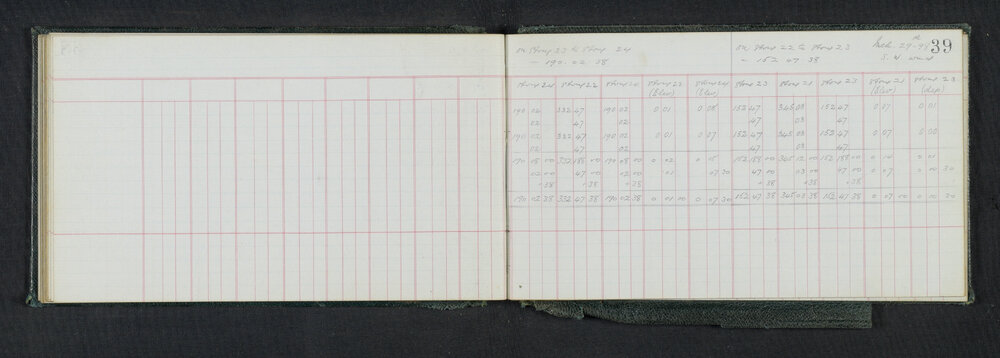 on Stump 23 to Stump 24 on Stump 22 to Stump 23 29 39
— 190 . 02 38 — 152 47 38 S. W wind
Stump 24 Stump 22 Stump 24 Stump 22 Stump 24 Stump 23 Stump 21 Stump 23 Stump 21 Stump 23
(Elev) (Elev) (Elev) (dep)
190 02 332 47 190 02 0 01 0 08 152 47 345 03 152 47 0 07 0 01
02 47 02 47 03 47
190 02 332 47 190 02 0 01 0 07 152 47 345 03 152 47 0 07 0 00
02 47 02 47 03 47
190 08 00 332 188 00 190 08 00 0 02 0 15 152 188 00 345 12 00 152 188 00 0 14 0 01
02 00 47 00 02 00 01 07 30 47 00 03 00 47 00 0 07 0 00 30
+38 +38 +38 +38 +38 +38
190 02 38 332 47 38 190 02 38 0 01 00 0 07 30 152 47 38 345 03 38 152 47 38 0 07 00 0 00 30